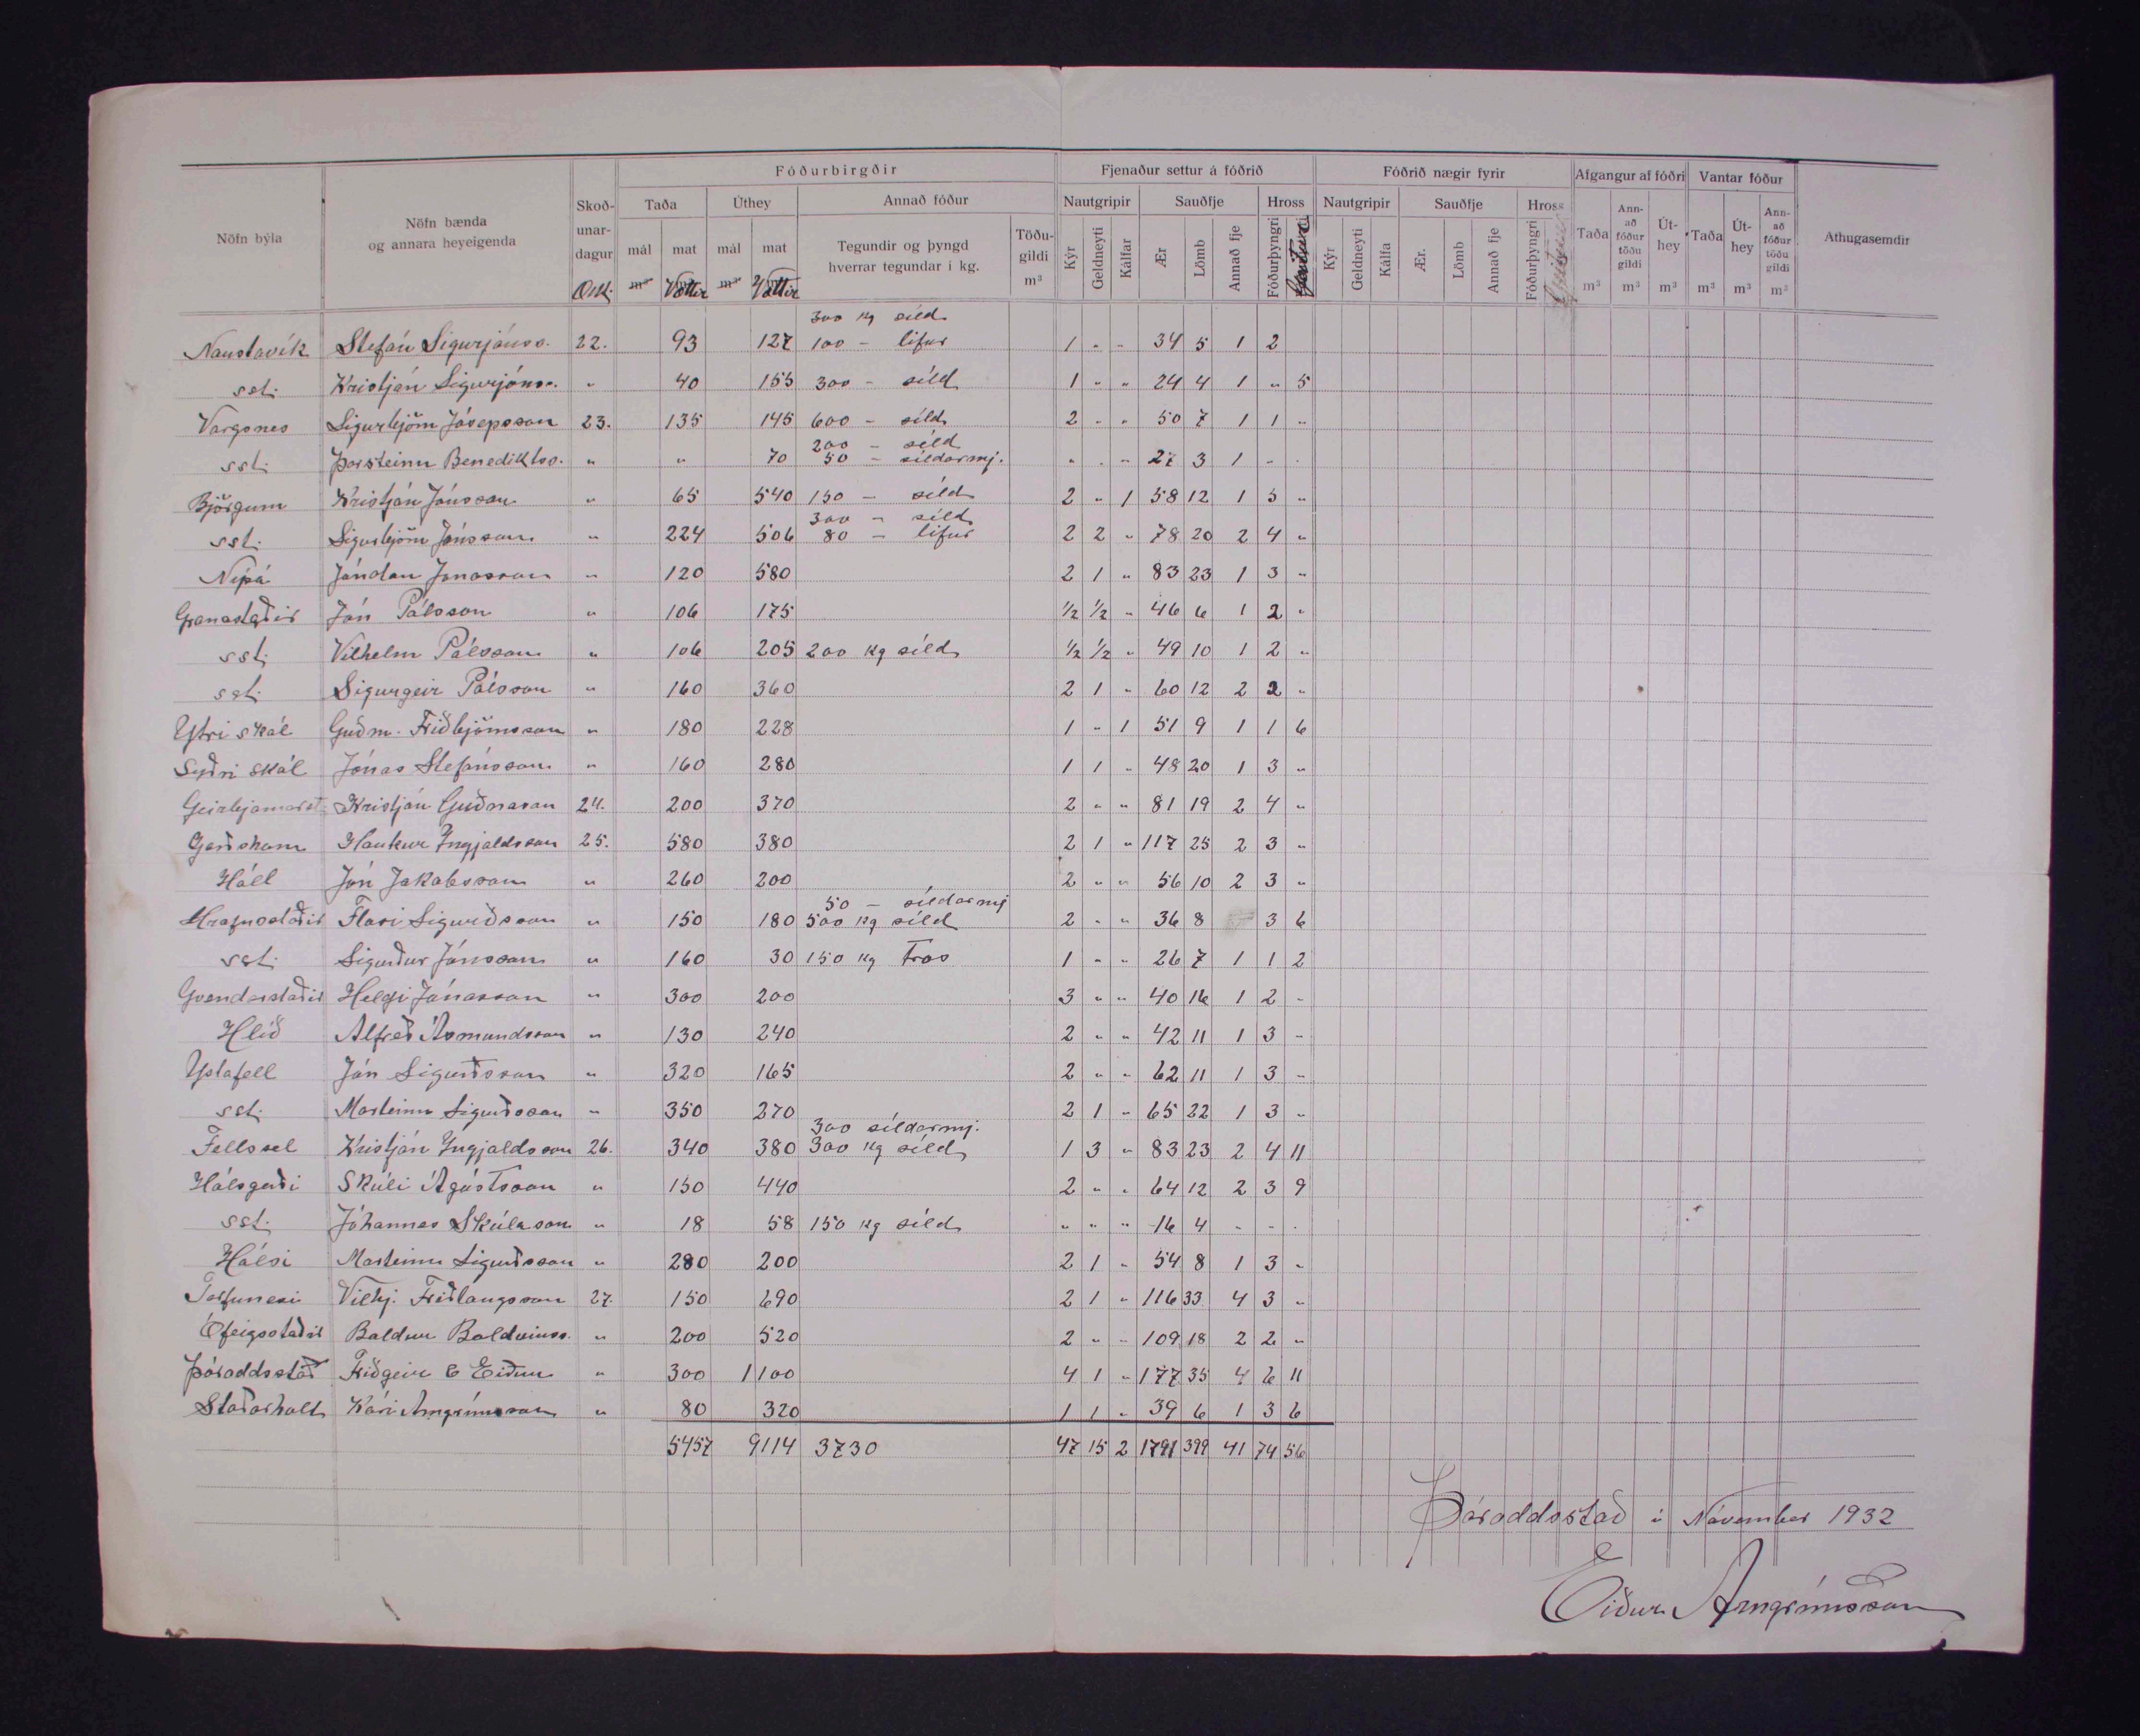 Fóðurbirgðir Fjenaður settur á fóðrið Fóðrið nægir fyrir Afgangur af fóðri Vantar fóður
Nöfn býla Nöfn bænda og annara heyeigenda Skoðunardagur Taða Úthey Annað fóður Nautgripir Sauðfje Hross Nautgripir Sauðfje Hross Taða Annað fóður töðu gildi Úthey Taða Úthey Annað fóður töðu gildi Athugasemdir
mál mat mál mat Tegundir og þyngd hverrar tegundar í kg. Töðugildi m³ Kýr Geldneyti Kálfar Ær Lömb Annað fje Fóðurþyngri Geitur Kýr Geldneyti Kálfa Ær. Lömb Annað fje Fóðurþyngri Geitur
Okt. m³ Vættir m³ Vættir m³ m³ m³ m³ m³ m³
300 kg síld
Naustavík Stefán Sigurjónss. 22. 93 127 100 - lifur 1 " " 34 5 1 2
sst. Kristján Sigurjónss. " 40 155 300 - síld 1 " " 24 4 1 " 5
Vargsnes Sigurbjörn Jósepsson 23. 135 145 600 - síld 2 " " 50 7 1 1 "
200 - síld
sst. Þorsteinn Benediktss. " " 70 50 - síldarmj. " " " 27 3 1 " "
Björgum Kristján Jónsson " 65 540 150 - síld 2 " 1 58 12 1 5 "
300 - síld
sst. Sigurbjörn Jónsson " 224 506 80 - lifur 2 2 " 78 20 2 4 "
Nípá Jónatan Jónasson " 120 580 2 1 " 83 23 1 3 "
Granastaðir Jón Pálsson " 106 175 ½ ½ " 46 6 1 2 "
sst. Vilhelm Pálsson " 106 205 200 kg síld ½ ½ " 49 10 1 2 "
sst. Sigurgeir Pálsson " 160 360 2 1 " 60 12 2 2 "
Ytri skál Guðm. Friðbjörnsson " 180 228 1 " 1 51 9 1 1 6
Syðri skál Jónas Stefánsson " 160 280 1 1 " 48 20 1 3 "
Geirbjarnarst. Kristján Guðnason 24. 200 370 2 " " 81 19 2 4 "
Garðshorn Haukur Ingjaldsson 25. 580 380 2 1 " 117 25 2 3 "
Háll Jón Jakobsson " 260 200 2 " " 56 10 2 3 "
50 - síldarmj
Hrafnsstaðir Flosi Sigurðsson " 150 180 500 kg síld 2 " " 36 8 3 6
sst. Sigurður Jónsson " 160 30 150 kg Tros 1 " " 26 7 1 1 2
Gvendarstaðir Helgi Jónasson " 300 200 3 " " 40 16 1 2 "
Hlíð Alfreð Ásmundsson " 130 240 2 " " 42 11 1 3 "
Ystafell Jón Sigurðsson " 320 165 2 " " 62 11 1 3 "
sst. Marteinn Sigurðsson " 350 270 2 1 " 65 22 1 3 "
300 síldarmj.
Fellssel Kristján Ingjaldsson 26. 340 380 300 kg síld 1 3 " 83 23 2 4 11
Hálsgerði Skúli Ágústsson " 150 440 2 " " 64 12 2 3 9
sst. Jóhannes Skúlason " 18 58 150 kg síld " " " 16 4 " " "
Hálsi Marteinn Sigurðsson " 280 200 2 1 " 54 8 1 3 "
Torfunesi Vilhj. Friðlaugsson 27. 150 690 2 1 " 116 33 4 3 "
Ófeigsstaðir Baldur Baldvinss. " 200 520 2 " " 109 18 2 2 "
Þóroddsstað Friðgeir & Eiður " 300 1100 4 1 " 177 35 4 6 11
Staðarholt Kári Arngrímsson " 80 320 1 1 " 39 6 1 3 6
5457 9114 3730 47 15 2 1791 399 41 74 56
Þóroddsstað í Nóvember 1932
Eiður Arngrímsson